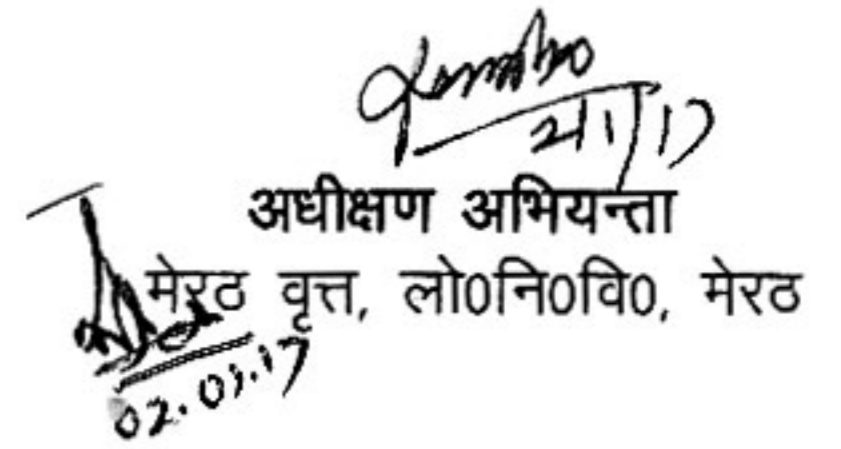 2/1/17
अधीक्षण अभियन्ता
मेरठ वृत्त, लो0नि0वि0, मेरठ
02.01.17